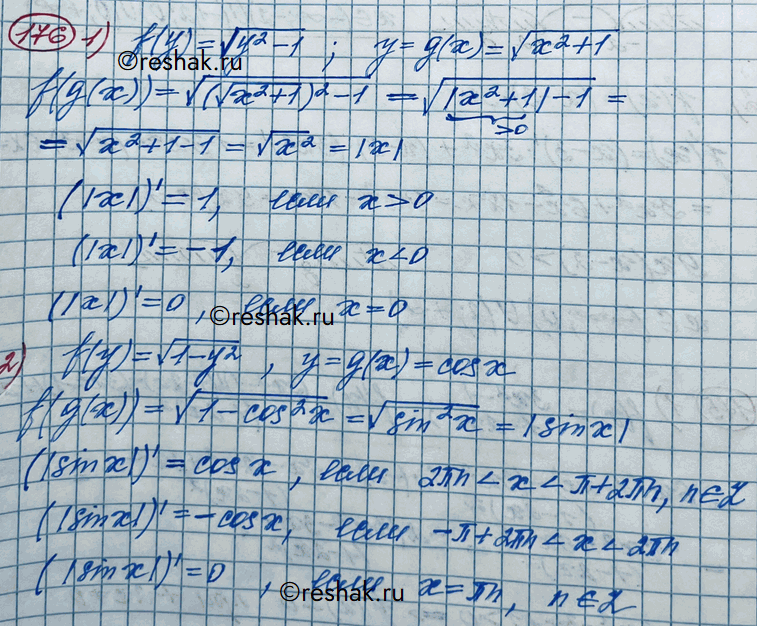 176 1) f(y) = √(y² - 1) ; y = g(x) = √(x² + 1)
©reshak.ru
f(g(x)) = √((√(x²+1))² - 1) = √(|x²+1| - 1) =
>0
= √(x²+1-1) = √x² = |x|
(|x|)' = 1, если x > 0
(|x|)' = -1, если x < 0
(|x|)' = 0, если x = 0
©reshak.ru
2) f(y) = √(1-y²) , y = g(x) = cos x
f(g(x)) = √(1 - cos²x) = √(sin²x) = |sin x|
(|sin x|)' = cos x , если 2πn < x < π+2πn, n∈Z
(|sin x|)' = -cos x, если -π+2πn < x < 2πn
(|sin x|)' = 0 , если x = πn, n∈Z
©reshak.ru